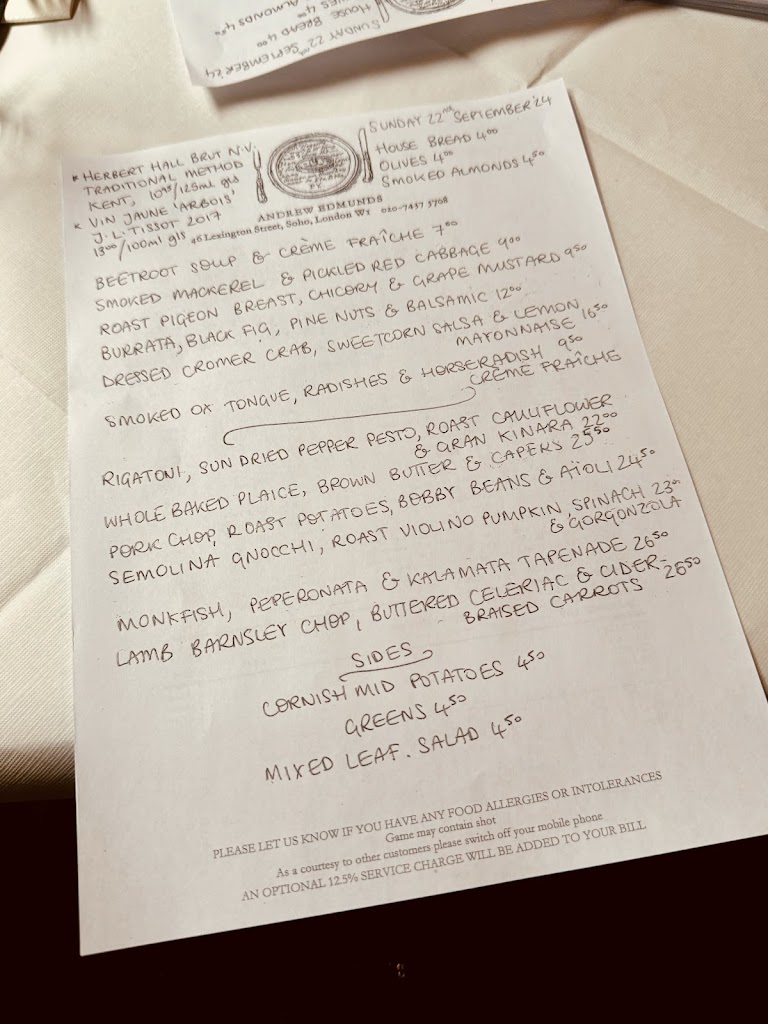 SUNDAY 22nd SEPTEMBER '24
HOUSE BREAD 4.00
ALMONDS 4.50
* HERBERT HALL BRUT N.V.
TRADITIONAL METHOD
KENT, 10.95/125ml gls
* VIN JAUNE 'ARBOIS'
J.L. TISSOT 2017
13.00/100ml gls
SUNDAY 22nd SEPTEMBER '24
HOUSE BREAD 4.00
OLIVES 4.00
SMOKED ALMONDS 4.50
ANDREW EDMUNDS
46 Lexington Street, Soho, London W1 020-7437 5708
BEETROOT SOUP & CRÈME FRAÎCHE 7.00
SMOKED MACKEREL & PICKLED RED CABBAGE 9.00
ROAST PIGEON BREAST, CHICORY & GRAPE MUSTARD 9.50
BURRATA, BLACK FIG, PINE NUTS & BALSAMIC 12.00
DRESSED CROMER CRAB, SWEETCORN SALSA & LEMON
MAYONNAISE 16.50
SMOKED OX TONGUE, RADISHES & HORSERADISH 9.50
CRÈME FRAÎCHE
RIGATONI, SUN DRIED PEPPER PESTO, ROAST CAULIFLOWER
& GRAN KINARA 22.00
WHOLE BAKED PLAICE, BROWN BUTTER & CAPERS 25.50
PORK CHOP, ROAST POTATOES, BOBBY BEANS & AÏOLI 24.50
SEMOLINA GNOCCHI, ROAST VIOLINO PUMPKIN, SPINACH 23.00
& GORGONZOLA
MONKFISH, PEPERONATA & KALAMATA TAPENADE 26.50
LAMB BARNSLEY CHOP, BUTTERED CELERIAC & CIDER- 26.50
BRAISED CARROTS
SIDES
CORNISH MID POTATOES 4.50
GREENS 4.50
MIXED LEAF. SALAD 4.50
PLEASE LET US KNOW IF YOU HAVE ANY FOOD ALLERGIES OR INTOLERANCES
Game may contain shot
As a courtesy to other customers please switch off your mobile phone
AN OPTIONAL 12.5% SERVICE CHARGE WILL BE ADDED TO YOUR BILL